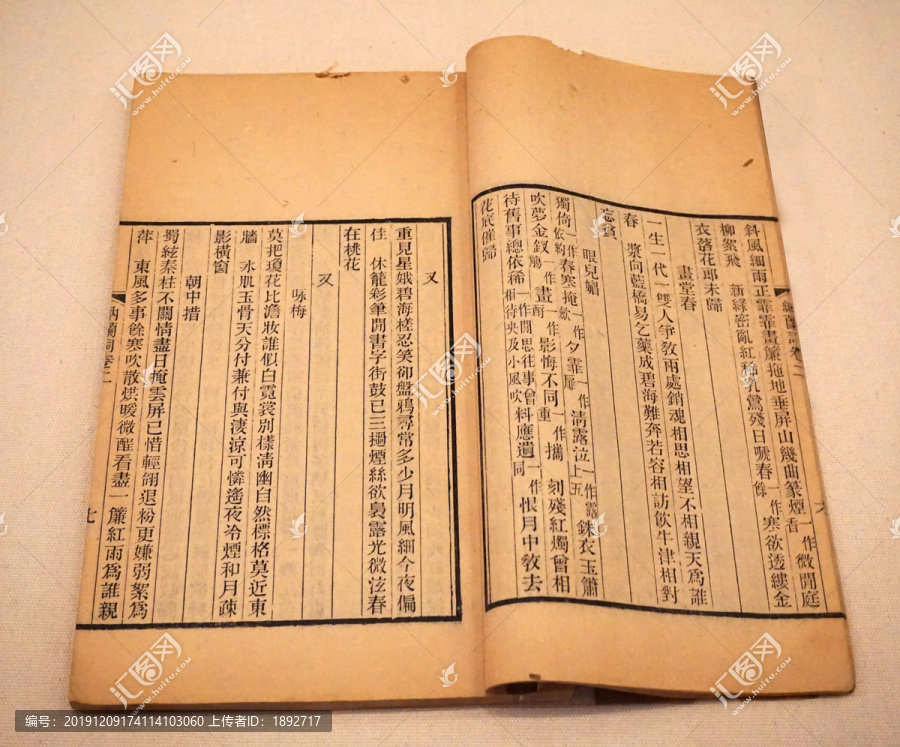 斜風細雨正霏霏畫簾拖地垂屏山幾曲篆煙香一作微閒庭
柳絮飛　新綠密亂紅稀乳鶯殘日啼春餘一作寒欲透縷金
衣落花郎未歸
畫堂春
一生一代一雙人爭敎兩處銷魂相思相望不相親天爲誰
春　漿向藍橋易乞藥成碧海難奔若容相訪飲牛津相對
忘貧
眼兒媚
獨倚依約一作春寒掩歛一作夕霏扉一作清露泣上五一作露銖衣玉簫
吹夢金釵觴一作畫酌一作影悔不同重一作攜　刻殘紅燭曾相
待舊事總依稀相待央及小風吹一作閒思往事曾料應遺同一作恨月中敎去
花底催歸
納蘭詞卷二
六
又
重見星娥碧海槎忍笑卻盤鴉尋常多少月明風細今夜偏
佳　休籠彩筆閒書字街鼓已三撾煙絲欲裊露光微泫春
在桃花
又
咏梅
莫把瓊花比澹妝誰似白霓裳別樣清幽自然標格莫近東
牆　氷肌玉骨天分付兼付與淒涼可憐遙夜冷煙和月疎
影橫窗
朝中措
蜀絃秦柱不關情盡日掩雲屏已惜輕翎退粉更嫌弱絮爲
萍　東風多事餘寒吹散烘暖微酲看盡一簾紅雨爲誰親
納蘭詞卷二
七
汇图网
www.huitu.com
编号：20191209174114103060 上传者ID：1892717